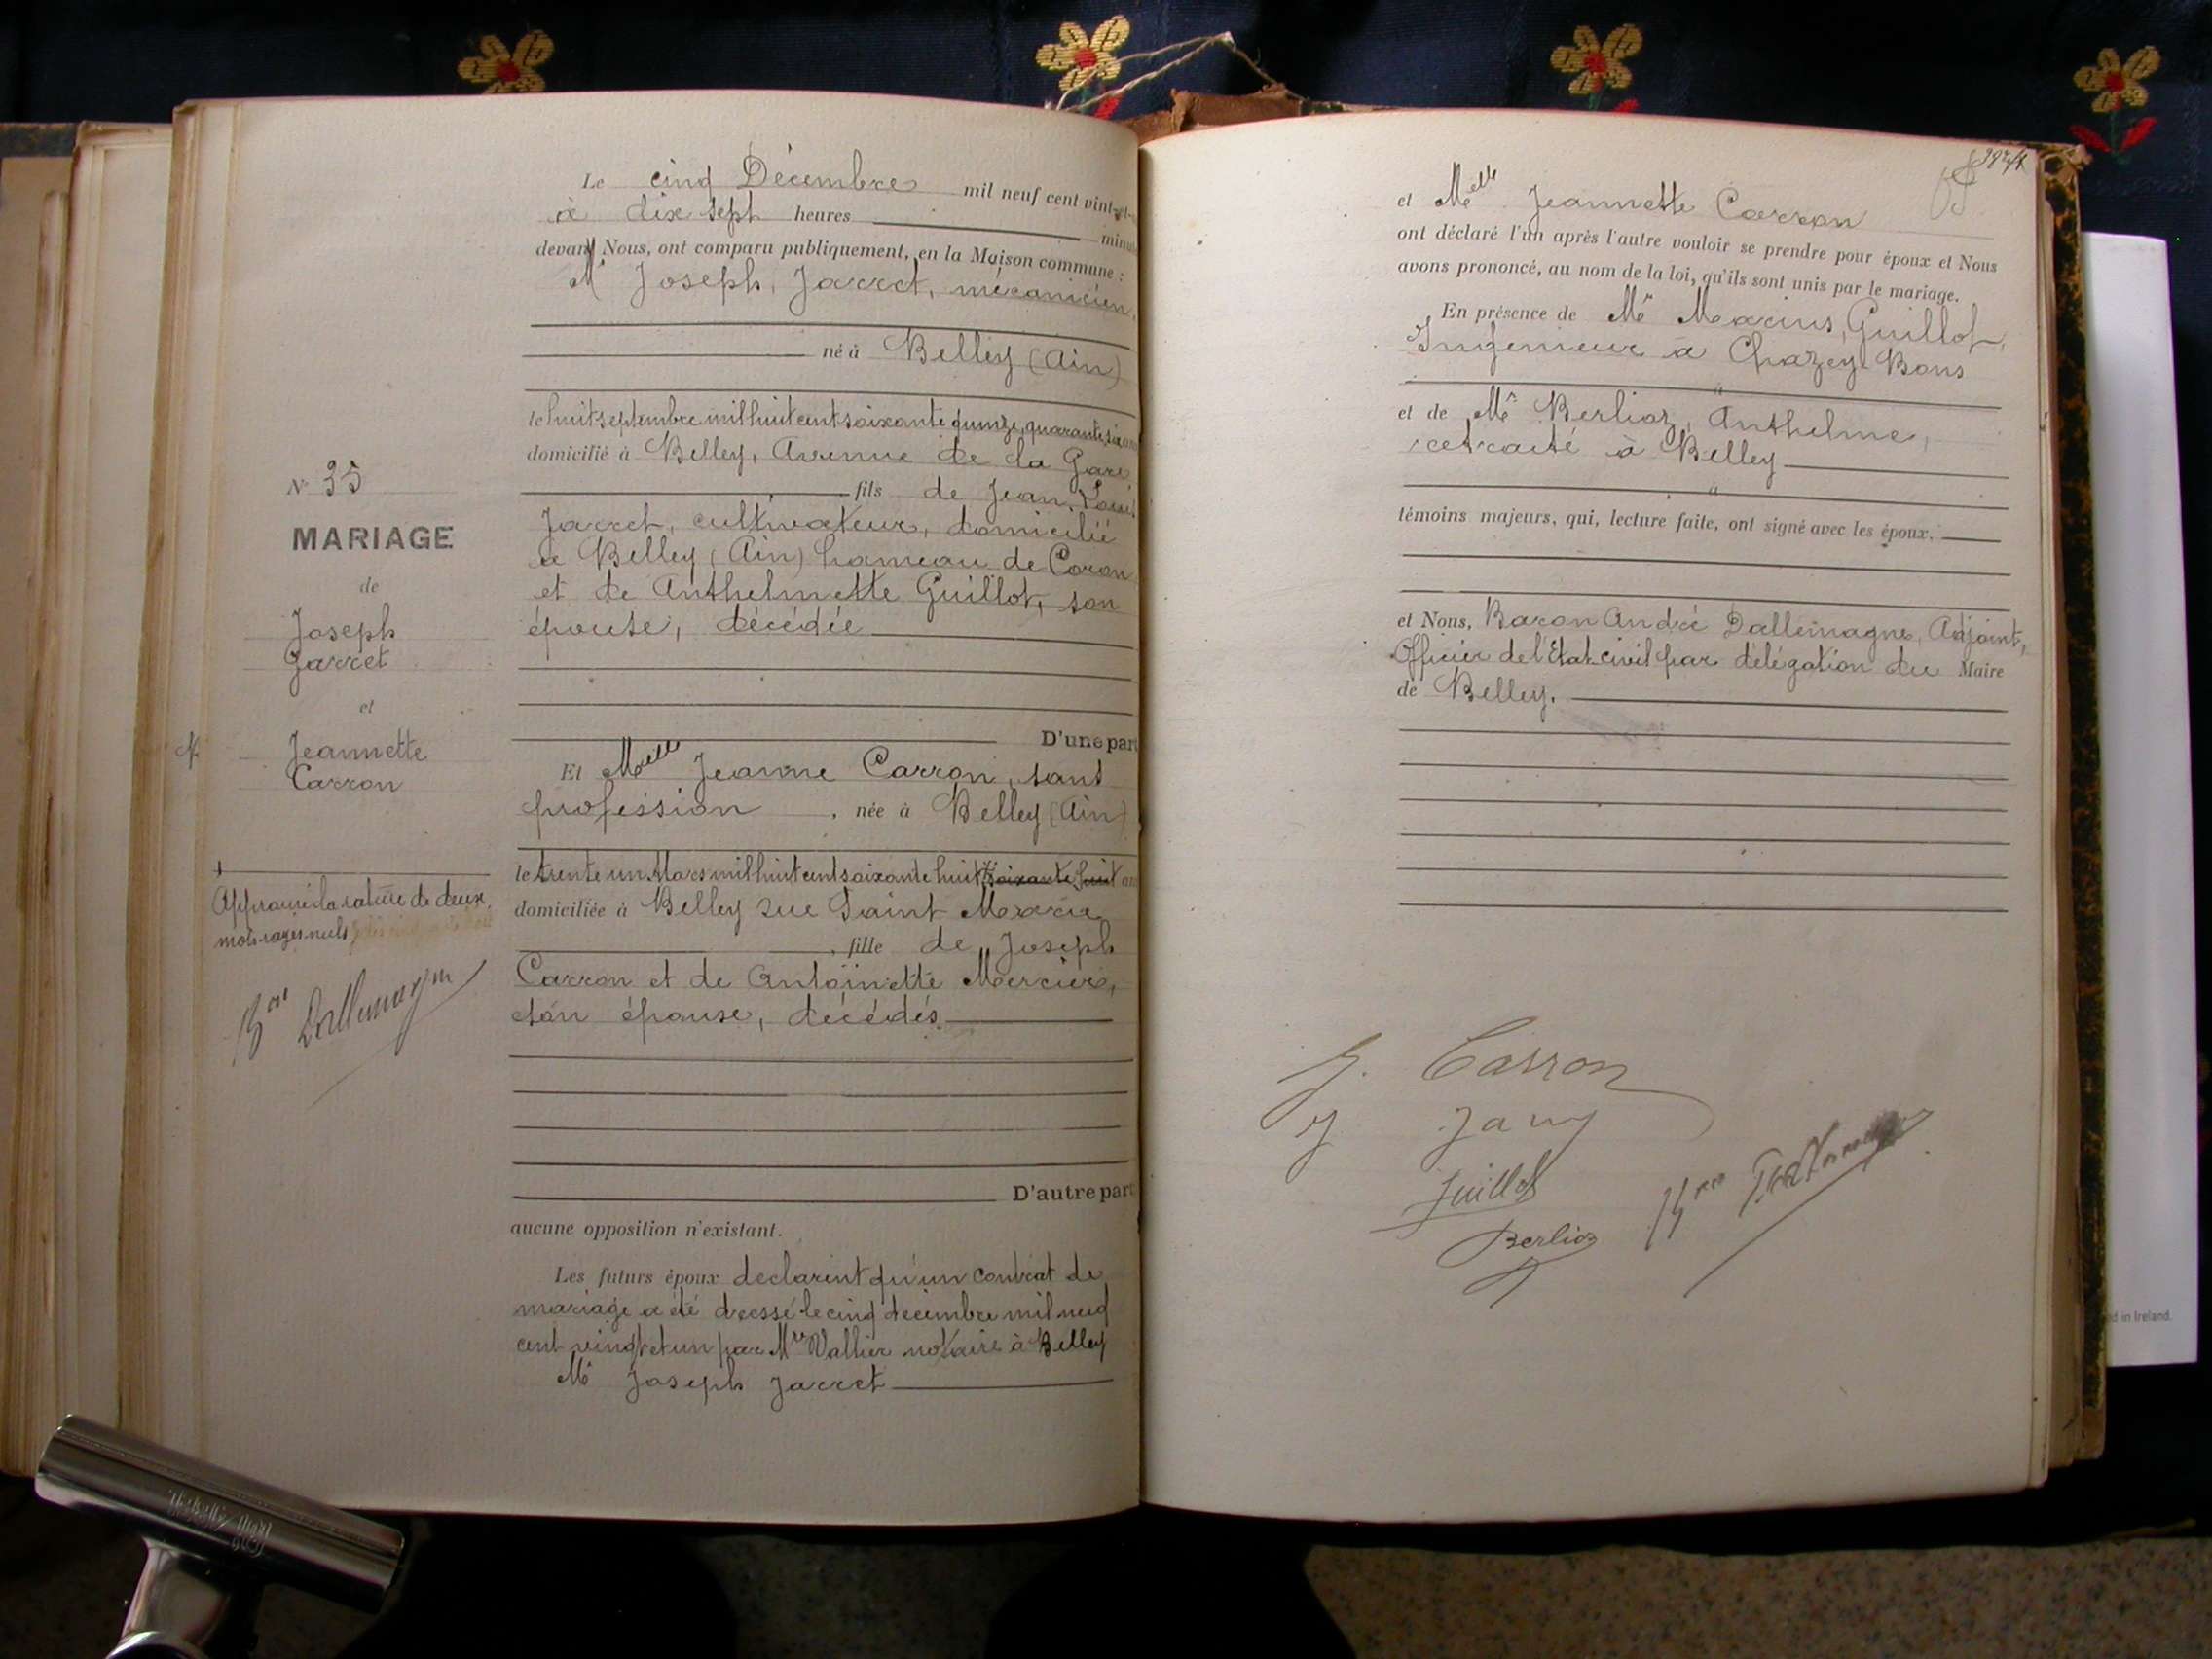 Le cinq Décembre mil neuf cent vint-et-
à dix sept heures minu
devant Nous, ont comparu publiquement, en la Maison commune :
Mr Joseph, Jarret, mécanicien,
né à Belley (Ain)
le huit septembre mil huit cent soixante quinze, quarante six ans
domicilié à Belley, Avenue de la Gare
fils de Jean, Louis
Jarret, cultivateur, domicilié
à Belley (Ain) hameau de Coron
et de Anthelmette Guillot, son
épouse, décédée
D'une part
Et Melle Jeanne Carron, sans
profession, née à Belley (Ain)
le trente un Mars mil huit cent soixante huit soixante huit ans
domiciliée à Belley rue Saint Marie
, fille de Joseph
Carron et de Antoinette Mercier,
son épouse, décédés
D'autre part
aucune opposition n'existant.
Les futurs époux declarent qu'un contrat de
mariage a été dressé le cinq décembre mil neuf
cent vingt et un par Mre Vallier notaire à Belley
Mr Joseph Jarret
N° 35
MARIAGE
de
Joseph
Jarret
et
Jeannette
Carron
Approuvé la rature de deux
mots rayés nuls
Bon Dallemagne
et Melle Jeannette Carron
ont déclaré l'un après l'autre vouloir se prendre pour époux et Nous
avons prononcé, au nom de la loi, qu'ils sont unis par le mariage.
En présence de Mr Marius, Guillot,
Ingenieur à Chazey-Bons
et de Mr Berlioz, Anthelme,
retraité à Belley
témoins majeurs, qui, lecture faite, ont signé avec les époux.
et Nous, Baron André Dallemagne, Adjoint,
Officier de l'Etat-civil par délégation du Maire
de Belley.
J. Carron
J Jarret
Guillot
Berlioz
Bon Dallemagne
d in Ireland.